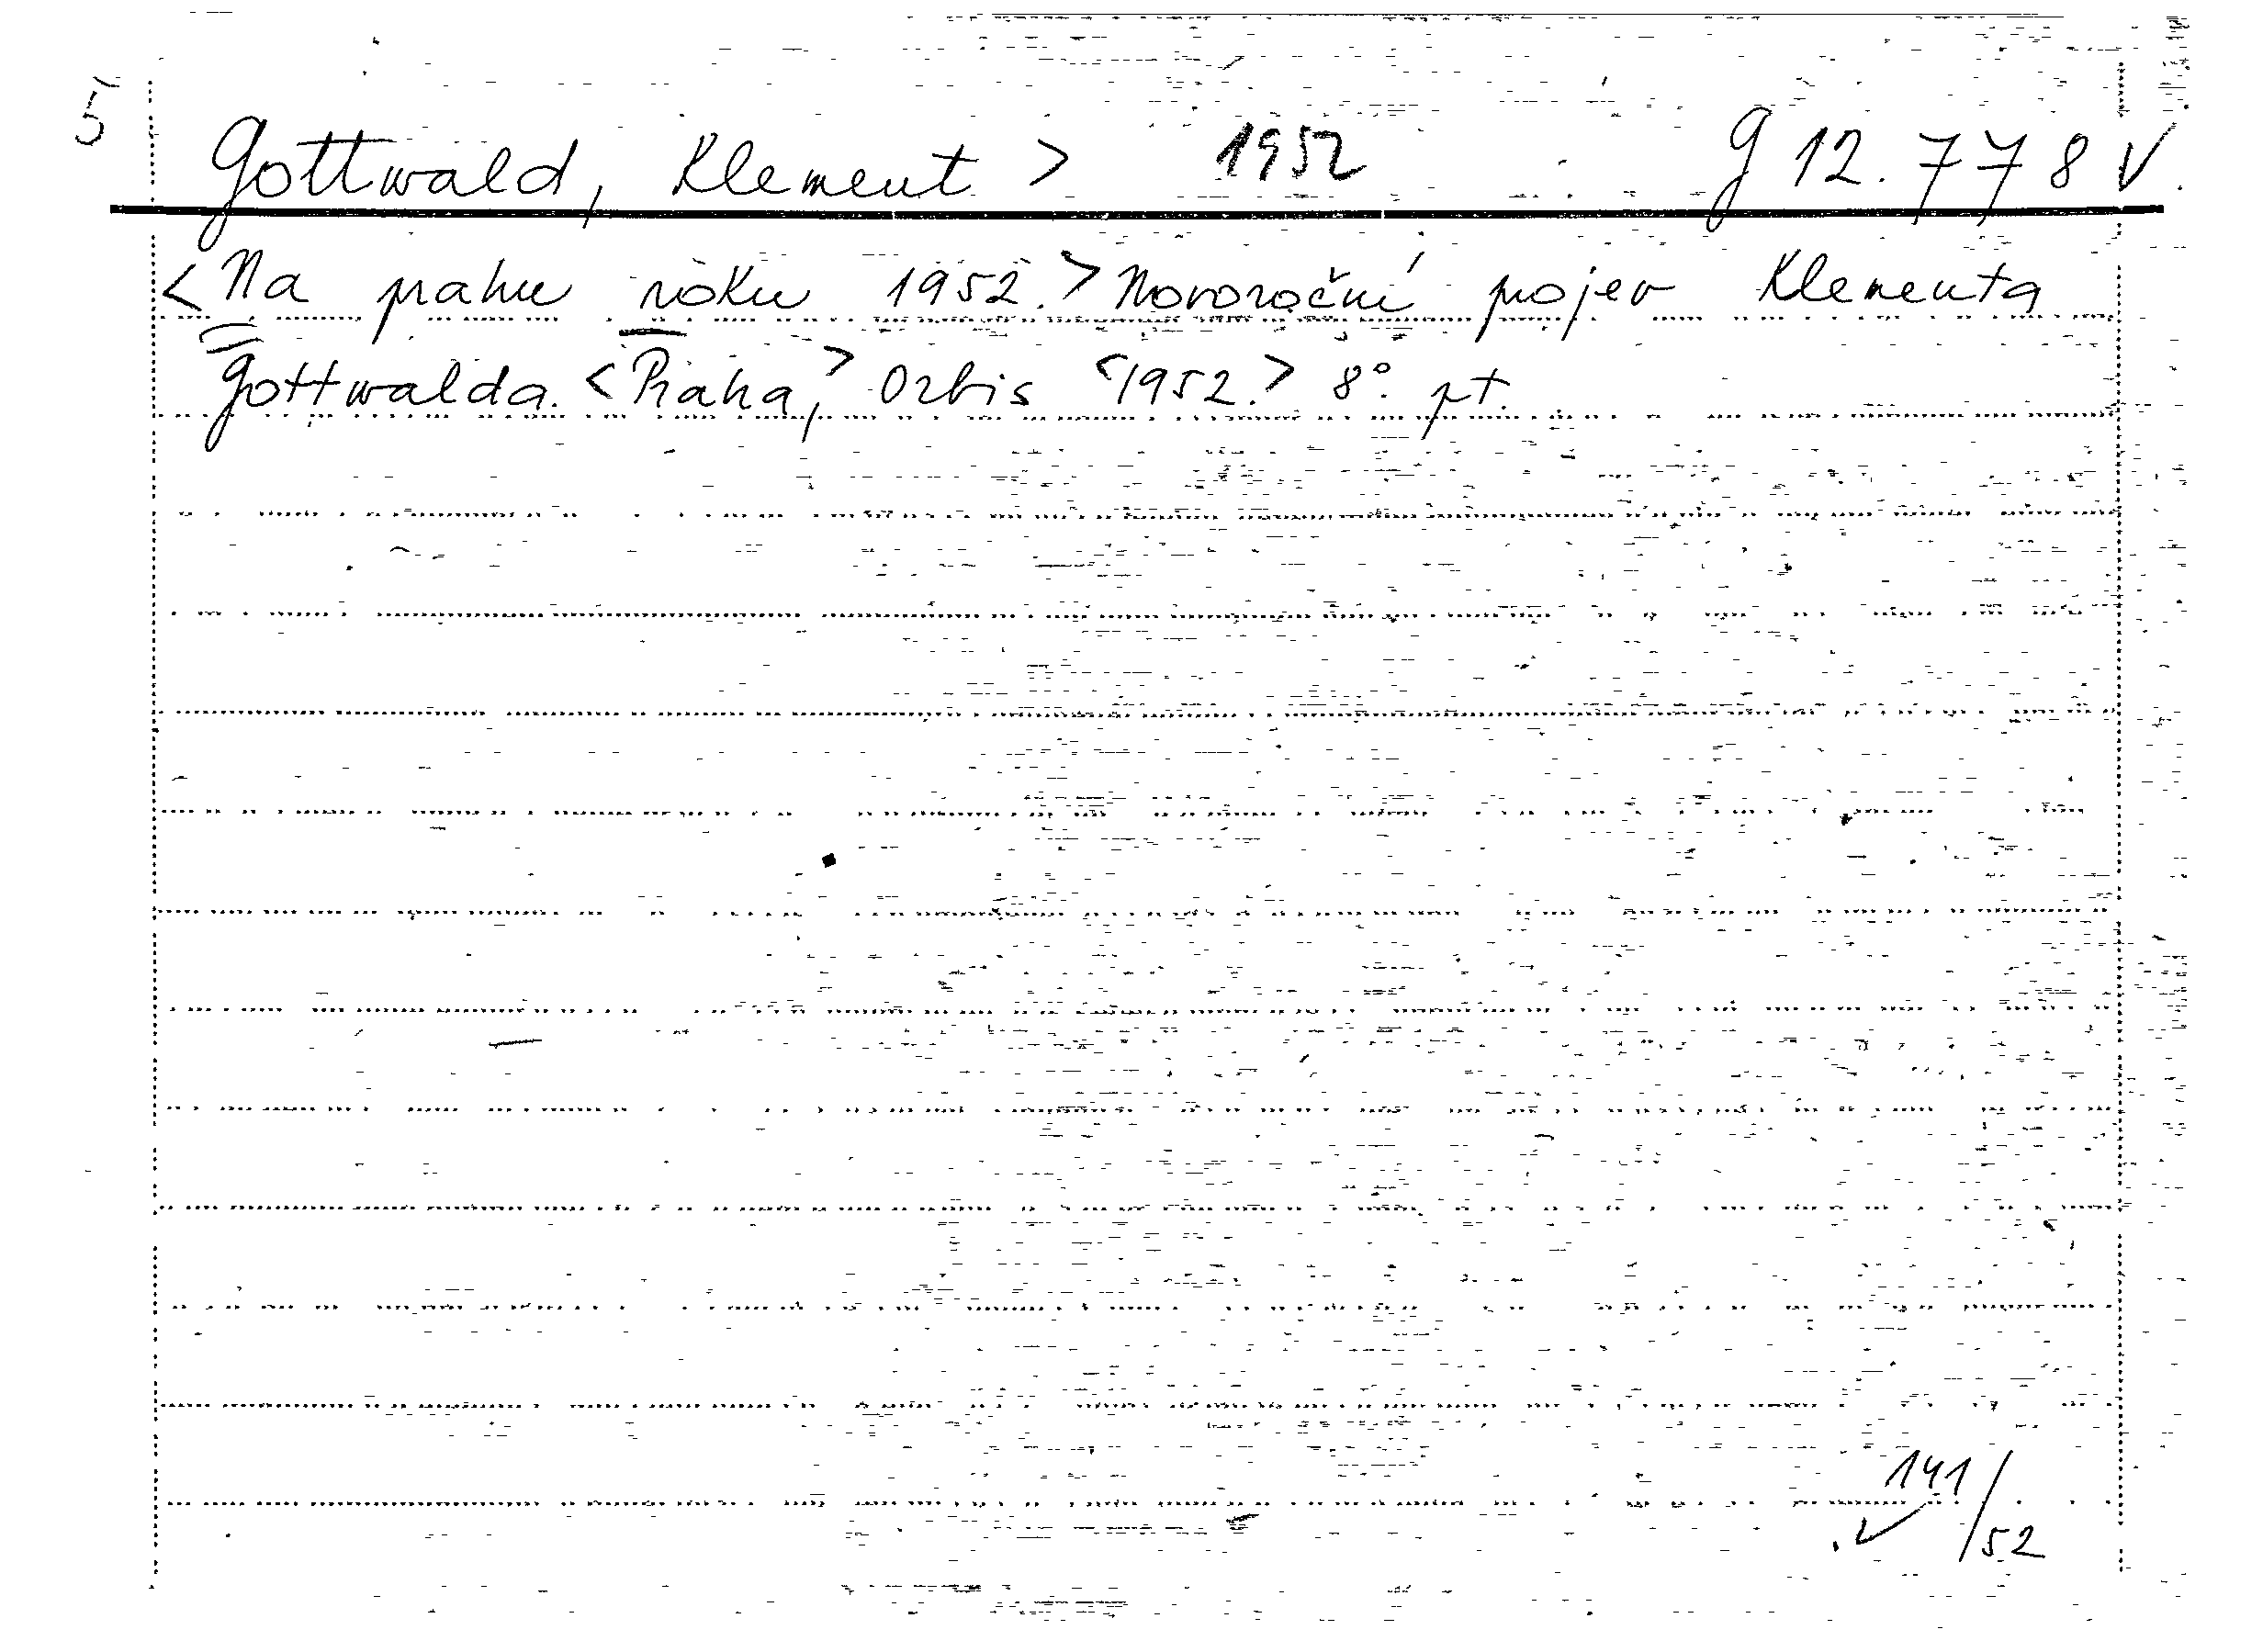 5
Gottwald, Klement > 1952 G 12.778 V.
<Na prahu roku 1952.> Novoroční projev Klementa
Gottwalda. <Praha,> Orbis <1952.> 8°. pt.
141/52